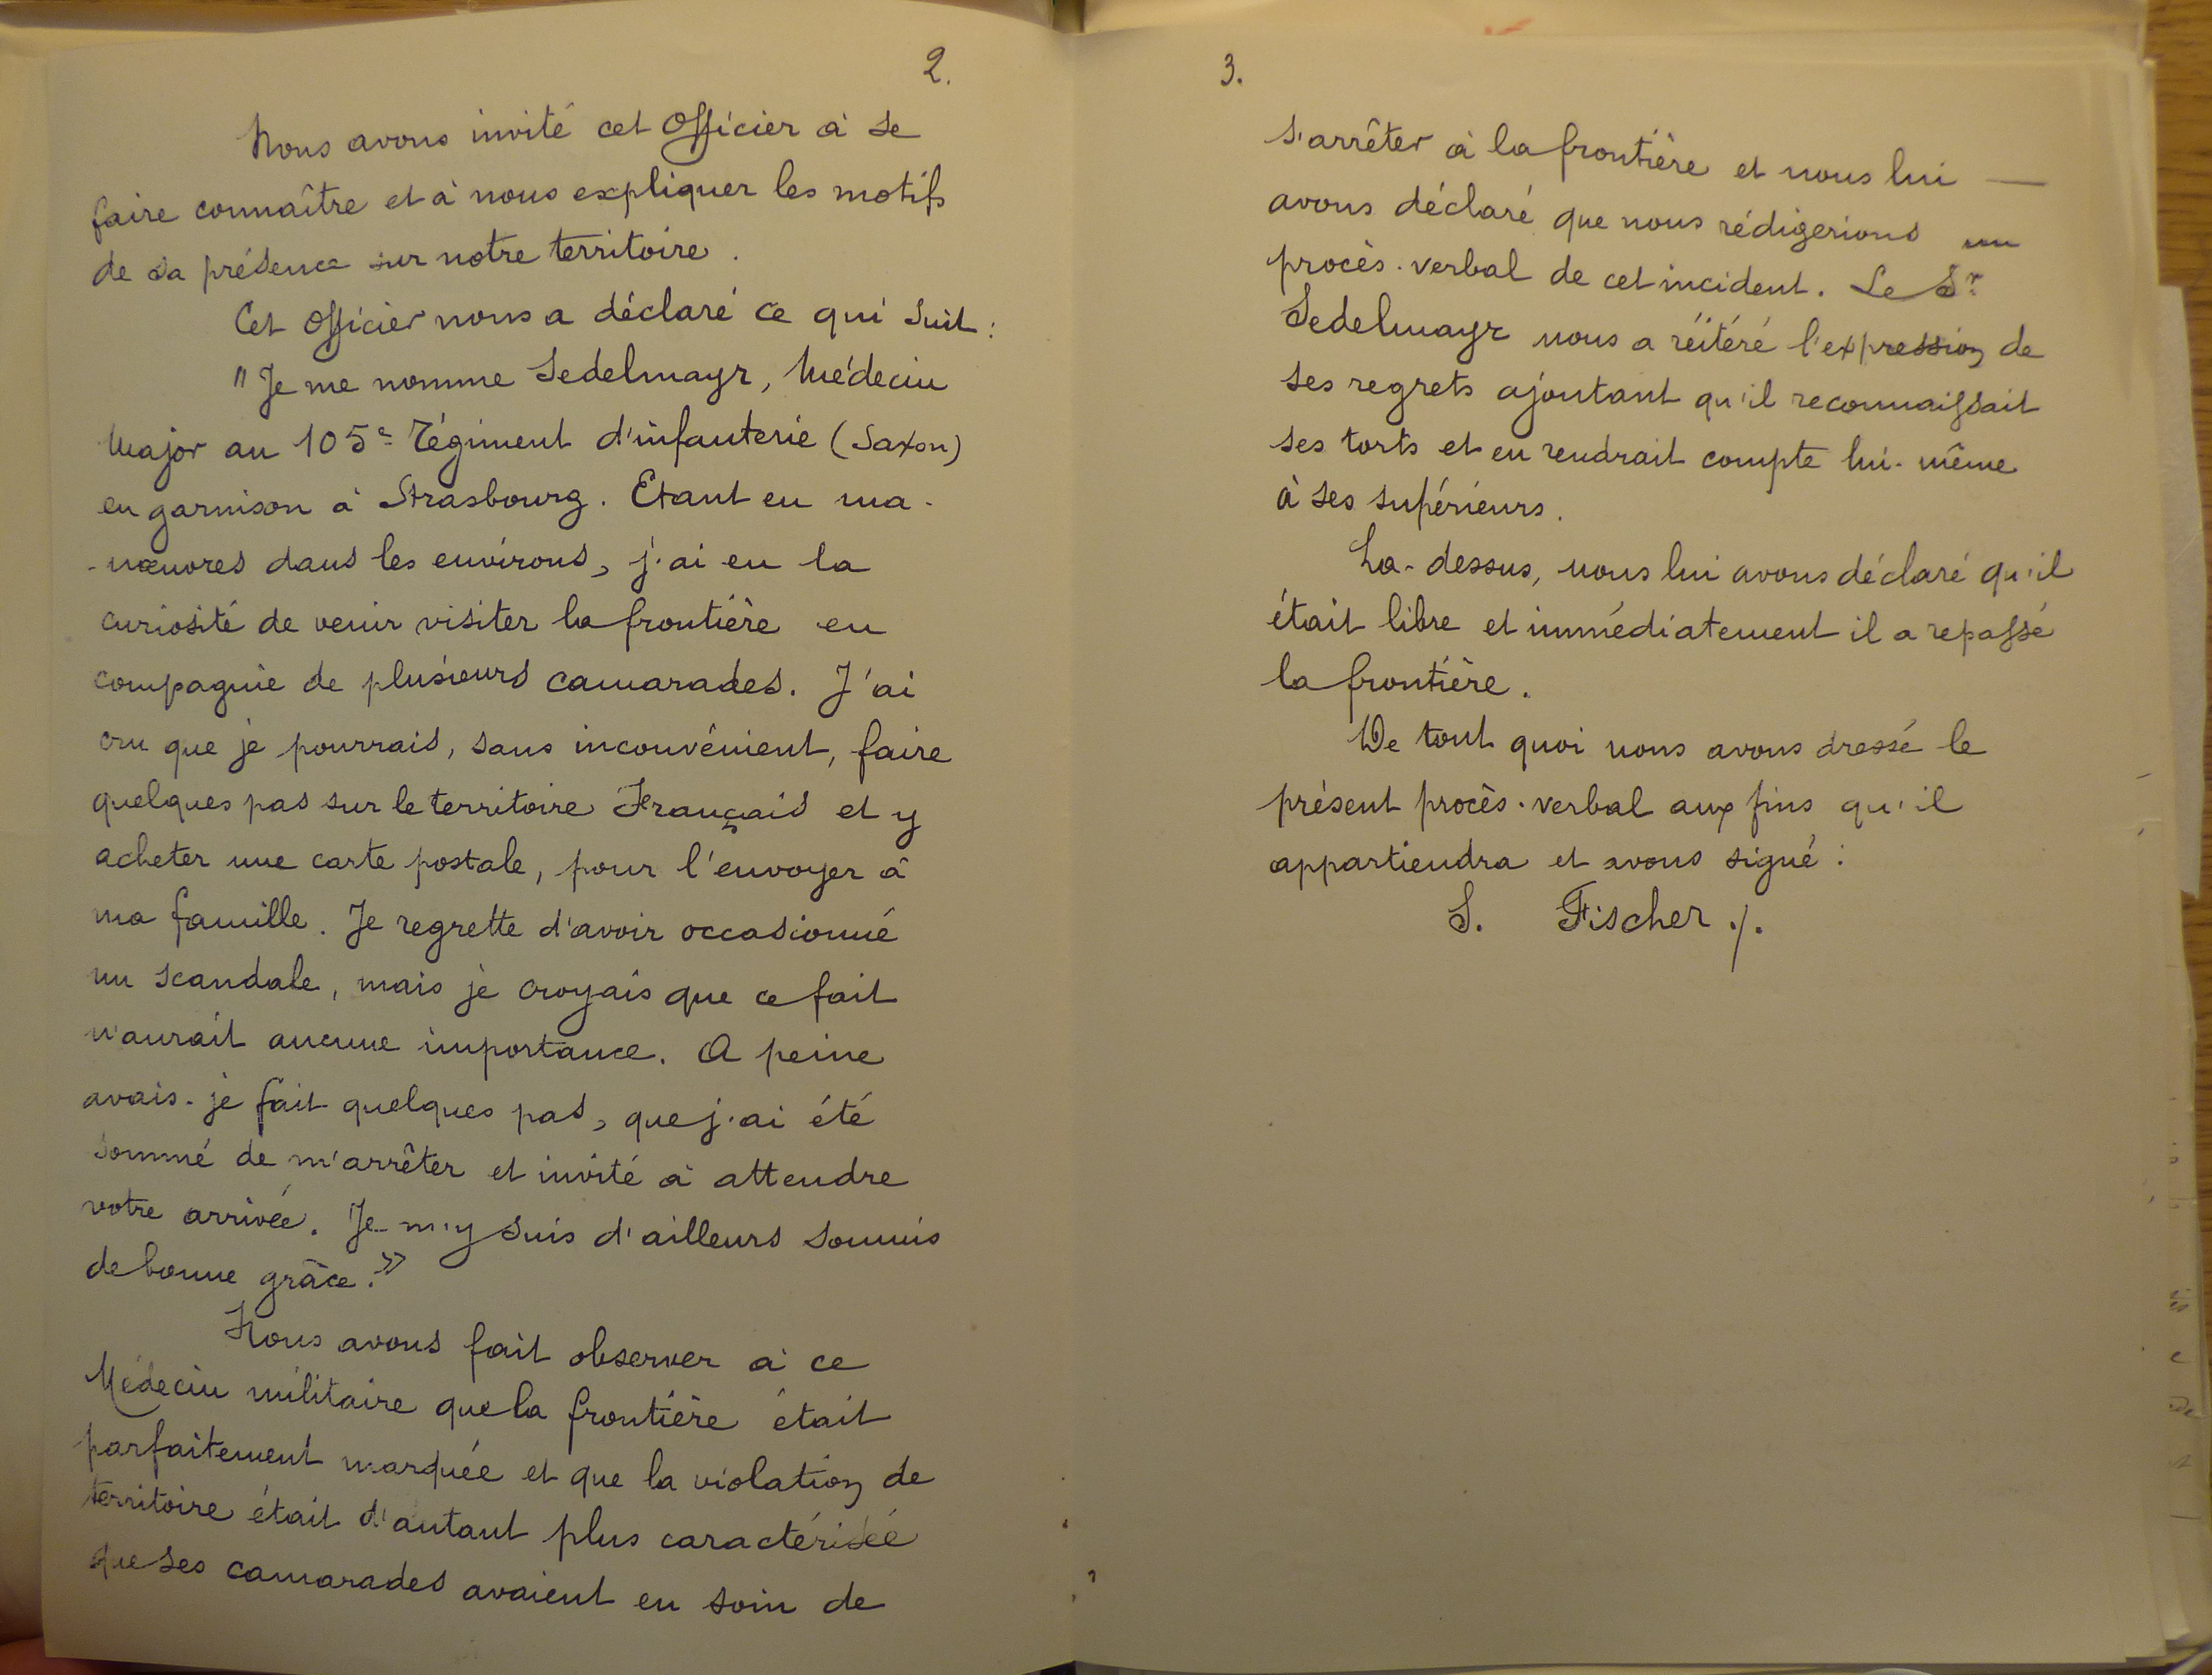 2.
Nous avons invité cet Officier à se
faire connaître et à nous expliquer les motifs
de sa présence sur notre territoire.
Cet Officier nous a déclaré ce qui suit :
"Je me nomme Sedelmayr, Médecin
Major au 105e Régiment d'infanterie (Saxon)
en garnison à Strasbourg. Etant en ma-
-nœuvres dans les environs, j'ai eu la
curiosité de venir visiter la frontière en
compagnie de plusieurs camarades. J'ai
cru que je pourrais, sans inconvénient, faire
quelques pas sur le territoire Français et y
acheter une carte postale, pour l'envoyer à
ma famille. Je regrette d'avoir occasionné
un scandale, mais je croyais que ce fait
n'aurait aucune importance. A peine
avais-je fait quelques pas, que j'ai été
sommé de m'arrêter et invité à attendre
votre arrivée. Je m'y suis d'ailleurs soumis
de bonne grâce."
Nous avons fait observer à ce
Médecin militaire que la frontière était
parfaitement marquée et que la violation de
territoire était d'autant plus caractérisée
que ses camarades avaient eu soin de
3.
s'arrêter à la frontière et nous lui —
avons déclaré que nous rédigerions un
procès-verbal de cet incident. Le Sr
Sedelmayr nous a réitéré l'expression de
ses regrets ajoutant qu'il reconnaissait
ses torts et en rendrait compte lui-même
à ses supérieurs.
La-dessus, nous lui avons déclaré qu'il
était libre et immédiatement il a repassé
la frontière.
De tout quoi nous avons dressé le
présent procès-verbal aux fins qu'il
appartiendra et avons signé :
S. Fischer ./.